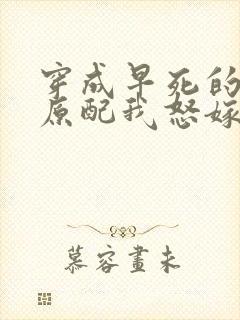 穿成早死的
原配我怒嫁
慕容画未